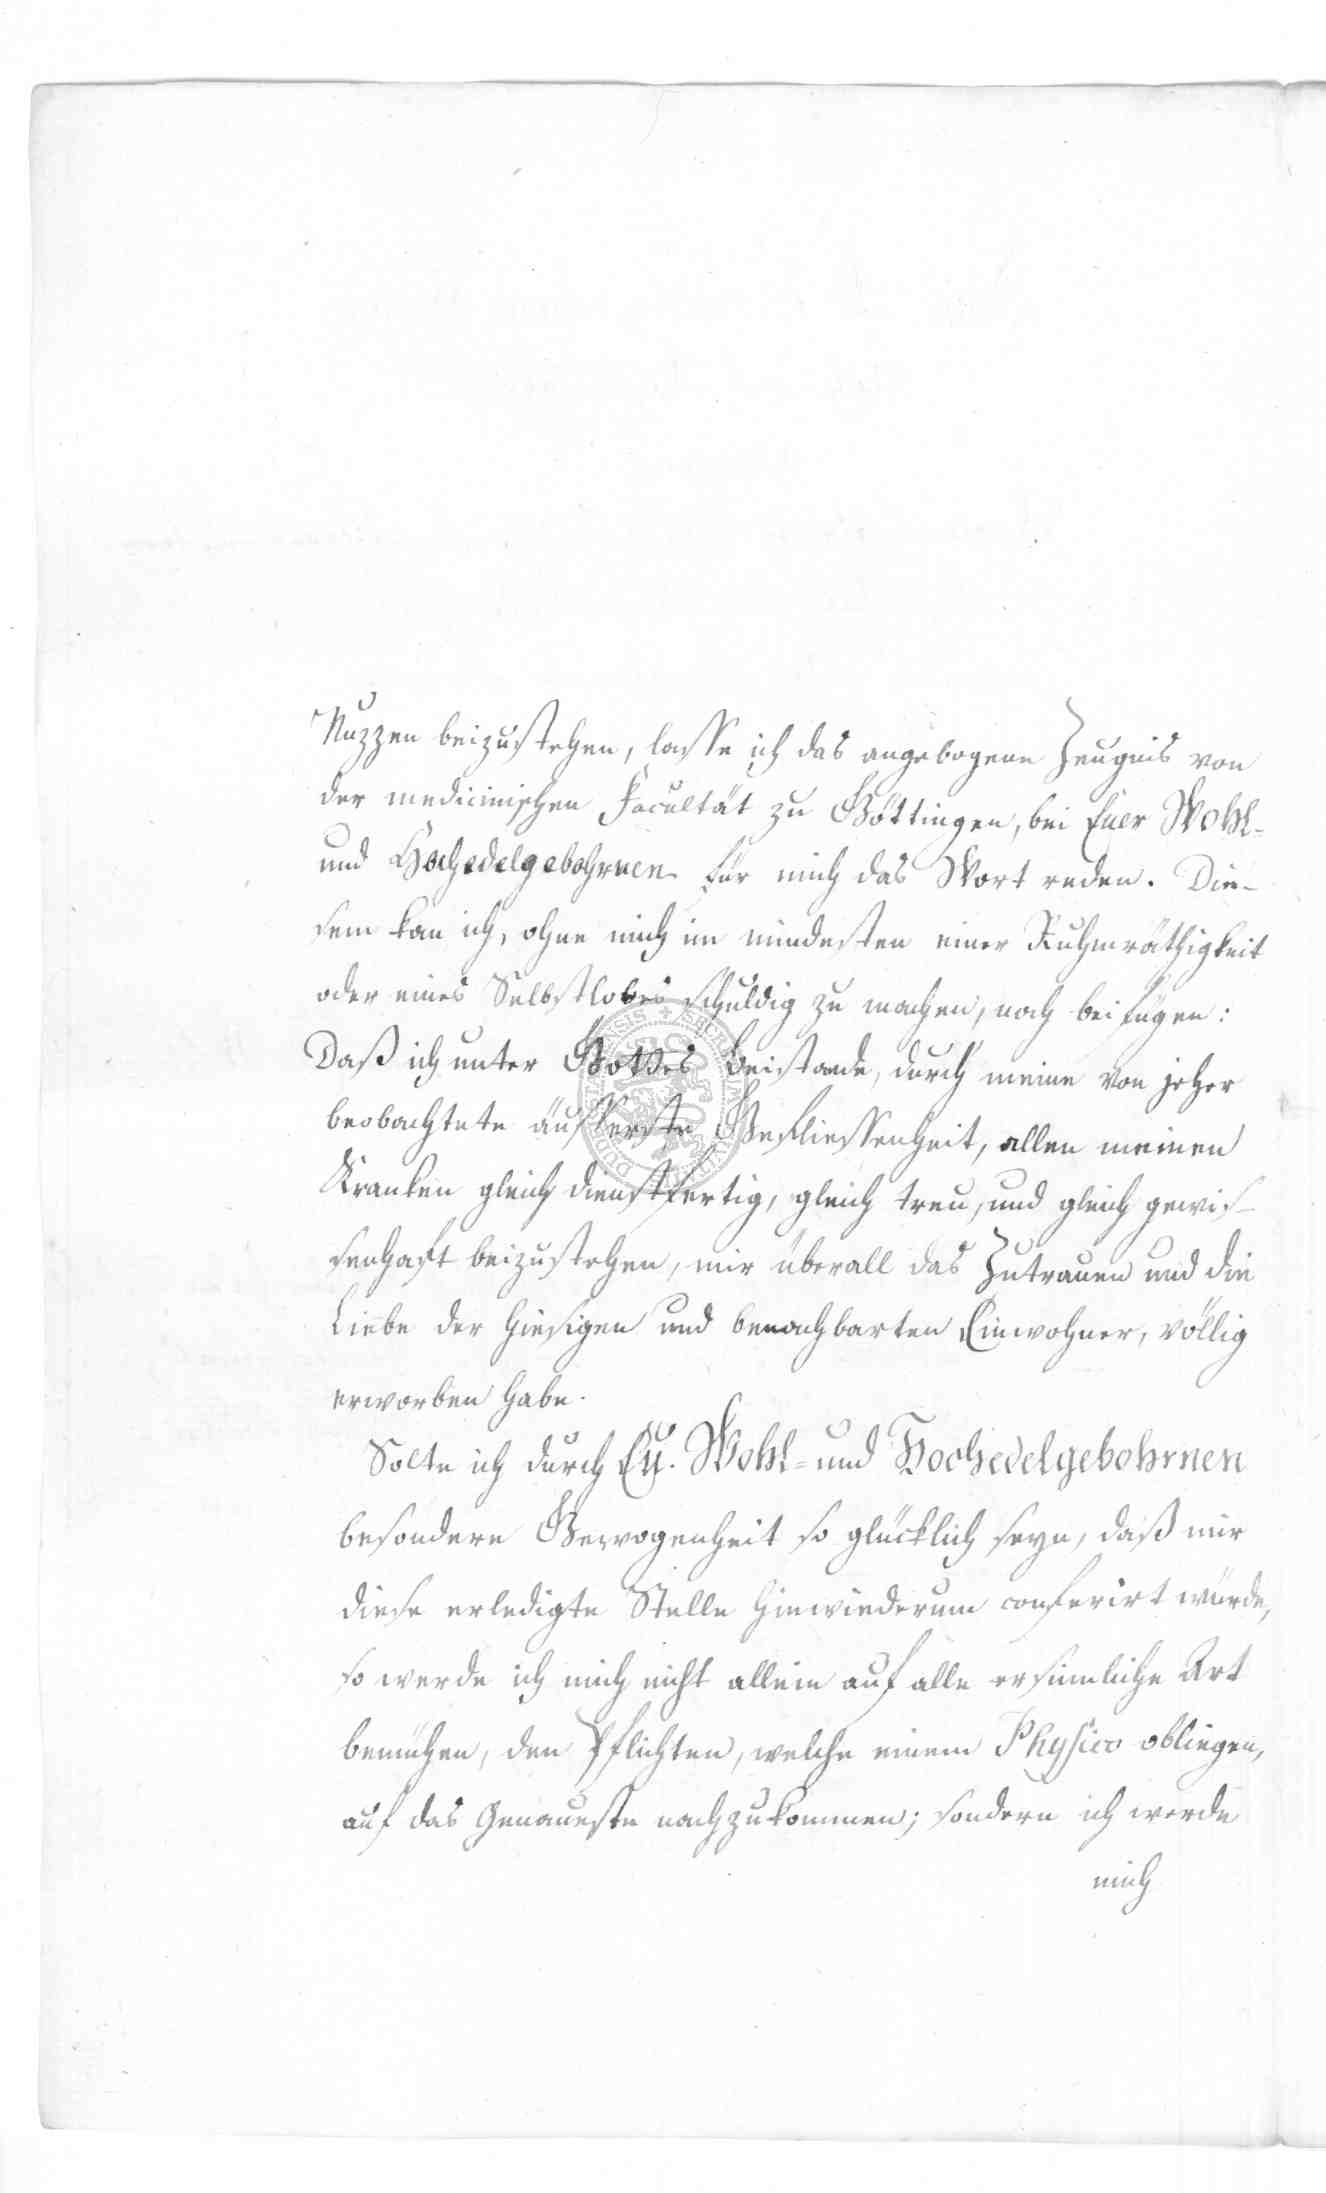 Nuzzen beizustehen, lasse ich das angebogene Zeugnis von
der medicinischen Facultät zu Göttingen, bei Euer Wohl-
und Hochedelgebohrnen für mich das Wort reden. Die-
sem kan ich, ohne mich im mindesten einer Ruhmräthigkeit
oder eines Selbstlobes schuldig zu machen, noch beifügen:
Daß ich unter Gottes Beistande, durch meine von jeher
beobachtete äusserste Beflissenheit, allen meinen
Kranken gleich dienstfertig, gleich treu, und gleich gewis-
senhaft beizustehen, mir überall das Zutrauen und die
Liebe der hiesigen und benachbarten Einwohner, völlig
erworben habe.
Solte ich durch Eu. Wohl- und Hochedelgebohrnen
besondere Gewogenheit so glücklich seyn, daß mir
diese erledigte Stelle hinwiederum conferirt würde,
so werde ich mich nicht allein auf alle ersinnliche Art
bemühen, den Pflichten, welche einem Physico obliegen,
auf das Genaueste nachzukommen; sondern ich werde
mich